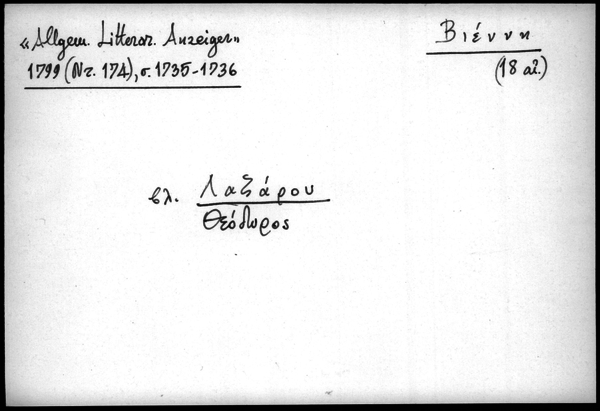 «Allgem. Litterar. Anzeiger»
1799 (Nr. 174), σ. 1735-1736
Βιέννη
(18 αἰ.)
βλ. Λαζάρου
Θεόδωρος